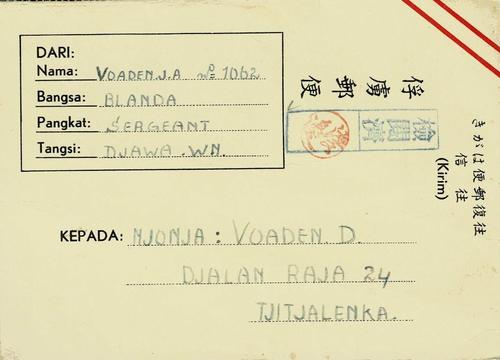 DARI:
Nama: VOADEN.J.A Nº 1062
Bangsa: BLANDA
Pangkat: SERGEANT
Tangsi: DJAWA.WN.
俘虜郵便
檢閲濟
往復郵便はがき
往信
(Kirim)
KEPADA: NJONJA: VOADEN. D.
DJALAN RAJA 24
TJITJALENKA.